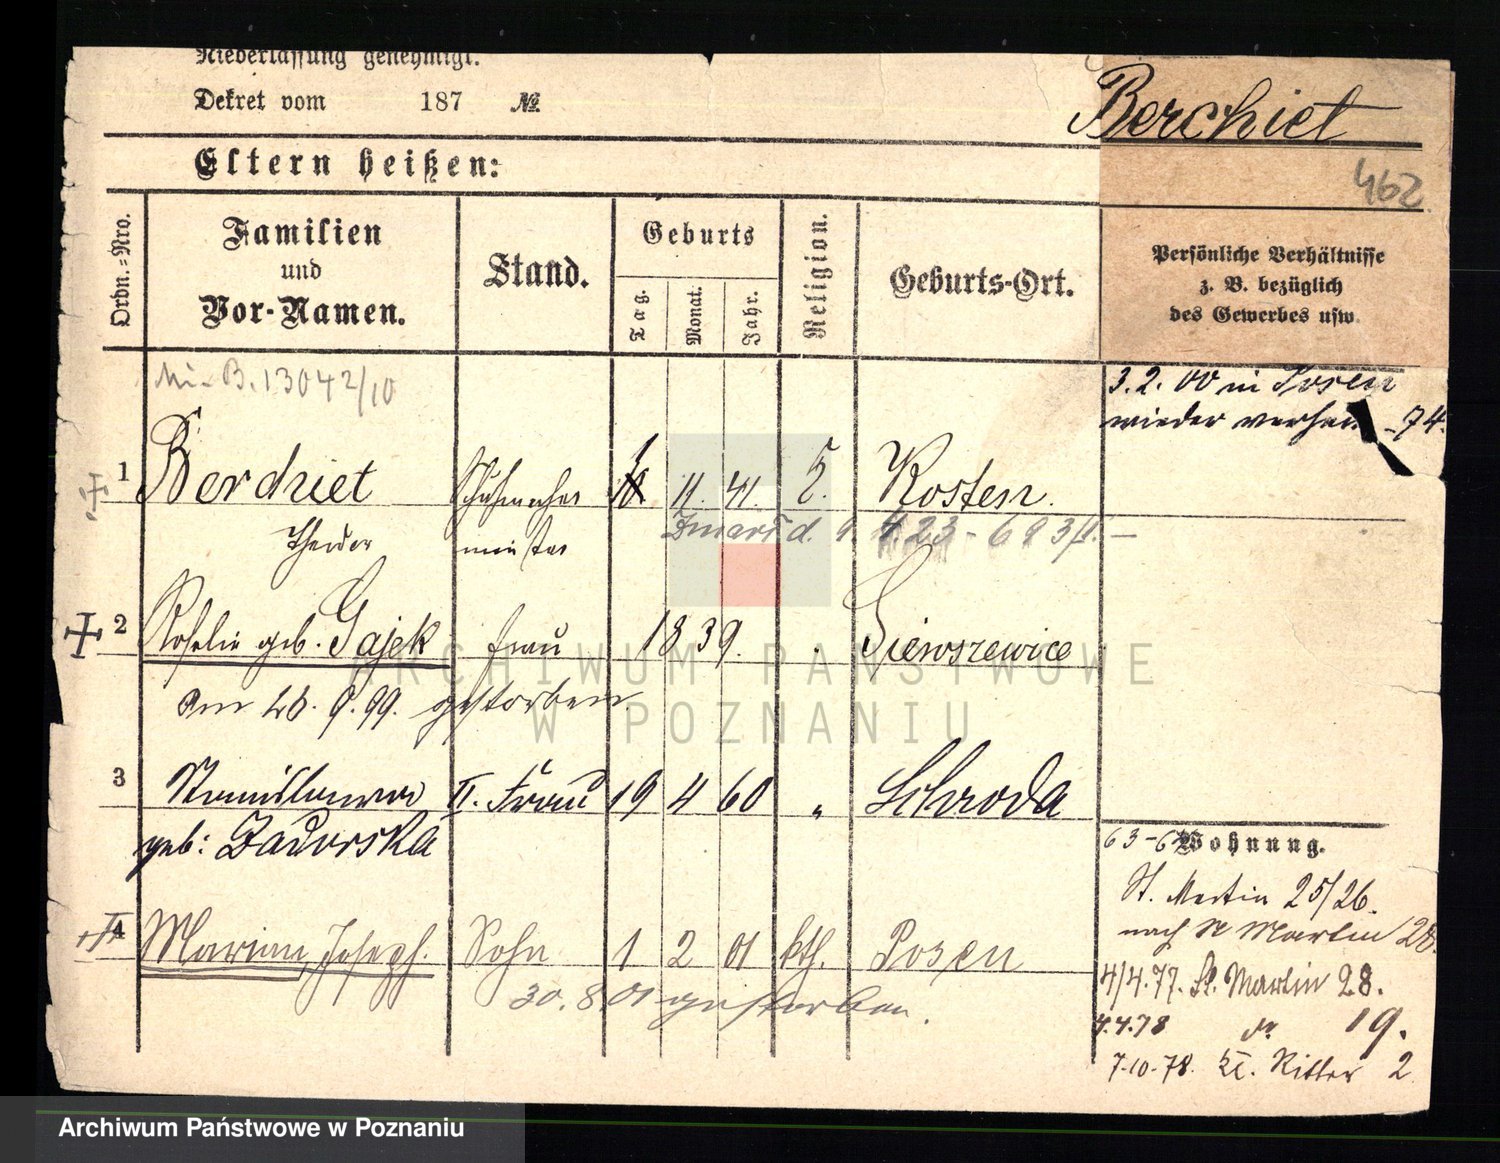 Niederlassung genehmigt.
Dekret vom 187 №
Berchiet
Eltern heißen:
462
Ordn.=Nro.
Familien
und
Vor-Namen.
Stand.
Geburts
Tag.
Monat.
Jahr.
Religion.
Geburts-Ort.
Persönliche Verhältnisse
z. B. bezüglich
des Gewerbes usw.
B. 13042/10
3.2.00 in Posen
wieder -74.
1 Berchiet Schuhmacher 11. 41. Kosten.
Theodor meister
d. 9. 4.23-
2 Rosalie geb. Gajek Frau 1839. "
am 26. 9. 99. gestorben.
3 Stanislawa II. Frau 19 4 60 " Schroda
geb: Zaworska
63-6 Wohnung.
St. Martin 25/26.
nach St Martin 28.
4 Marian, Joseph. Sohn 1 2 01 kth. Posen
30.8.01 gestorben.
4/4.77. St. Martin 28.
4.4.78 do 19.
7.10.78. Kl. Ritter 2
ARCHIWUM PAŃSTWOWE
W POZNANIU
Archiwum Państwowe w Poznaniu